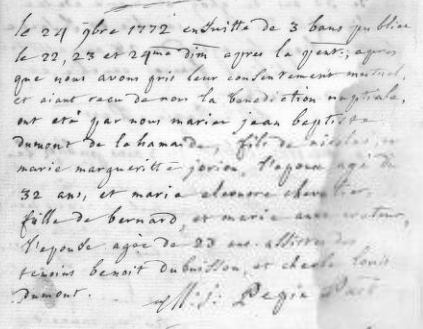 le 24 9bre 1772 ensuitte de 3 bans publiee
le 22, 23 et 24me dim apres la pent:, apres
que nous avons pris leur consentement mutuel,
et aiant recu de nous la benediction nuptiale,
ont eté par nous mariee jean baptiste
dumont de lahamaide, fils de nicolas, et
marie margueritte jorion, l'epoux agé de
32 ans, et marie eleonore chevalier,
fille de bernard, et marie anne
l'epouse agée de 23 ans. assistee des
temoins benoit dubuisson, et charle louis
dumont.
Pepin Past